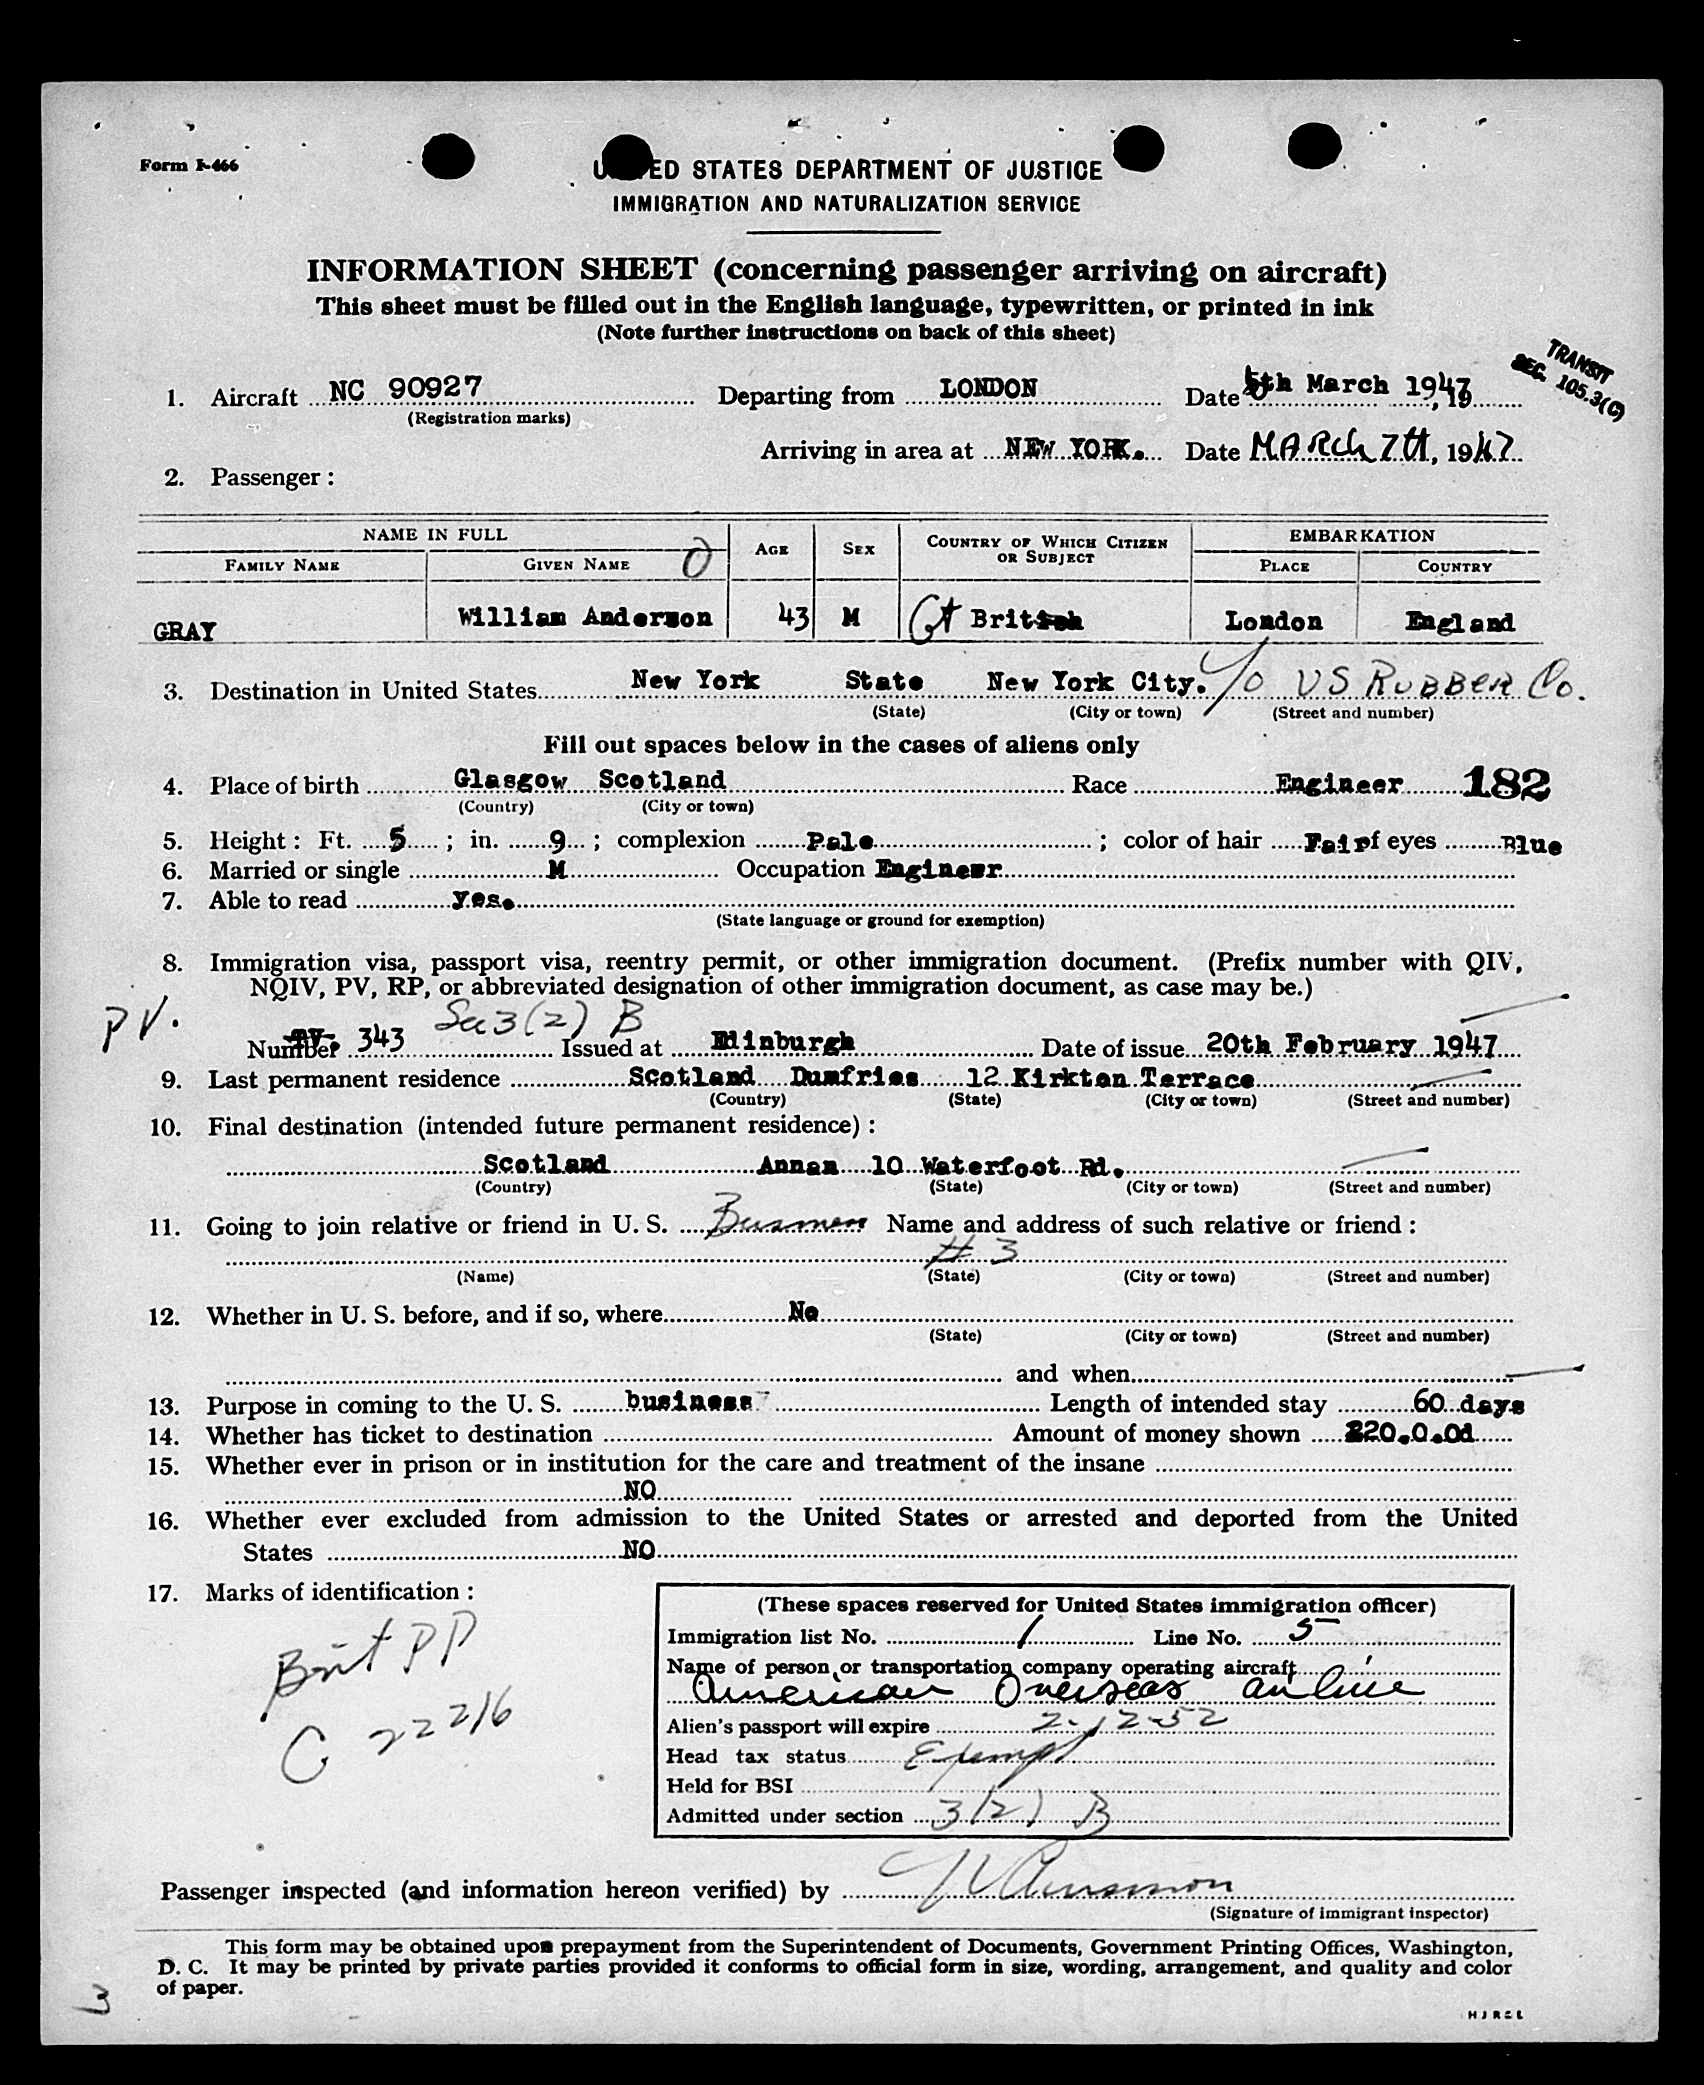 Form I-466
UNITED STATES DEPARTMENT OF JUSTICE
IMMIGRATION AND NATURALIZATION SERVICE
INFORMATION SHEET (concerning passenger arriving on aircraft)
This sheet must be filled out in the English language, typewritten, or printed in ink
(Note further instructions on back of this sheet)
TRANSIT
SEC. 105.3(C)
1. Aircraft NC 90927 Departing from LONDON Date 5th March 1947, 19
(Registration marks)
Arriving in area at NEW YORK. Date MARCH 7th, 1947
2. Passenger :
NAME IN FULL AGE SEX COUNTRY OF WHICH CITIZEN OR SUBJECT EMBARKATION
FAMILY NAME GIVEN NAME PLACE COUNTRY
GRAY William Anderson 43 M Gt British London England
3. Destination in United States New York State New York City. c/o US RUBBER Co.
(State) (City or town) (Street and number)
Fill out spaces below in the cases of aliens only
4. Place of birth Glasgow Scotland Race Engineer 182
(Country) (City or town)
5. Height : Ft. 5 ; in. 9 ; complexion Pale ; color of hair Fair of eyes Blue
6. Married or single M Occupation Engineer
7. Able to read yes.
(State language or ground for exemption)
8. Immigration visa, passport visa, reentry permit, or other immigration document. (Prefix number with QIV,
NQIV, PV, RP, or abbreviated designation of other immigration document, as case may be.)
PV. Sec 3(2) B
Number 343 Issued at Edinburgh Date of issue 20th February 1947
9. Last permanent residence Scotland Dumfries 12 Kirkton Terrace
(Country) (State) (City or town) (Street and number)
10. Final destination (intended future permanent residence) :
Scotland Annan 10 Waterfoot Rd.
(Country) (State) (City or town) (Street and number)
11. Going to join relative or friend in U. S. Business Name and address of such relative or friend :
# 3
(Name) (State) (City or town) (Street and number)
12. Whether in U. S. before, and if so, where No
(State) (City or town) (Street and number)
and when
13. Purpose in coming to the U. S. business Length of intended stay 60 days
14. Whether has ticket to destination Amount of money shown 220.0.0d
15. Whether ever in prison or in institution for the care and treatment of the insane
NO
16. Whether ever excluded from admission to the United States or arrested and deported from the United
States NO
17. Marks of identification :
Brit PP
C 22216
(These spaces reserved for United States immigration officer)
Immigration list No. 1 Line No. 5
Name of person or transportation company operating aircraft
American Overseas Airline
Alien's passport will expire 2-12-52
Head tax status Exempt
Held for BSI
Admitted under section 3(2) B
Passenger inspected (and information hereon verified) by
(Signature of immigrant inspector)
This form may be obtained upon prepayment from the Superintendent of Documents, Government Printing Offices, Washington,
D. C. It may be printed by private parties provided it conforms to official form in size, wording, arrangement, and quality and color
of paper.
3